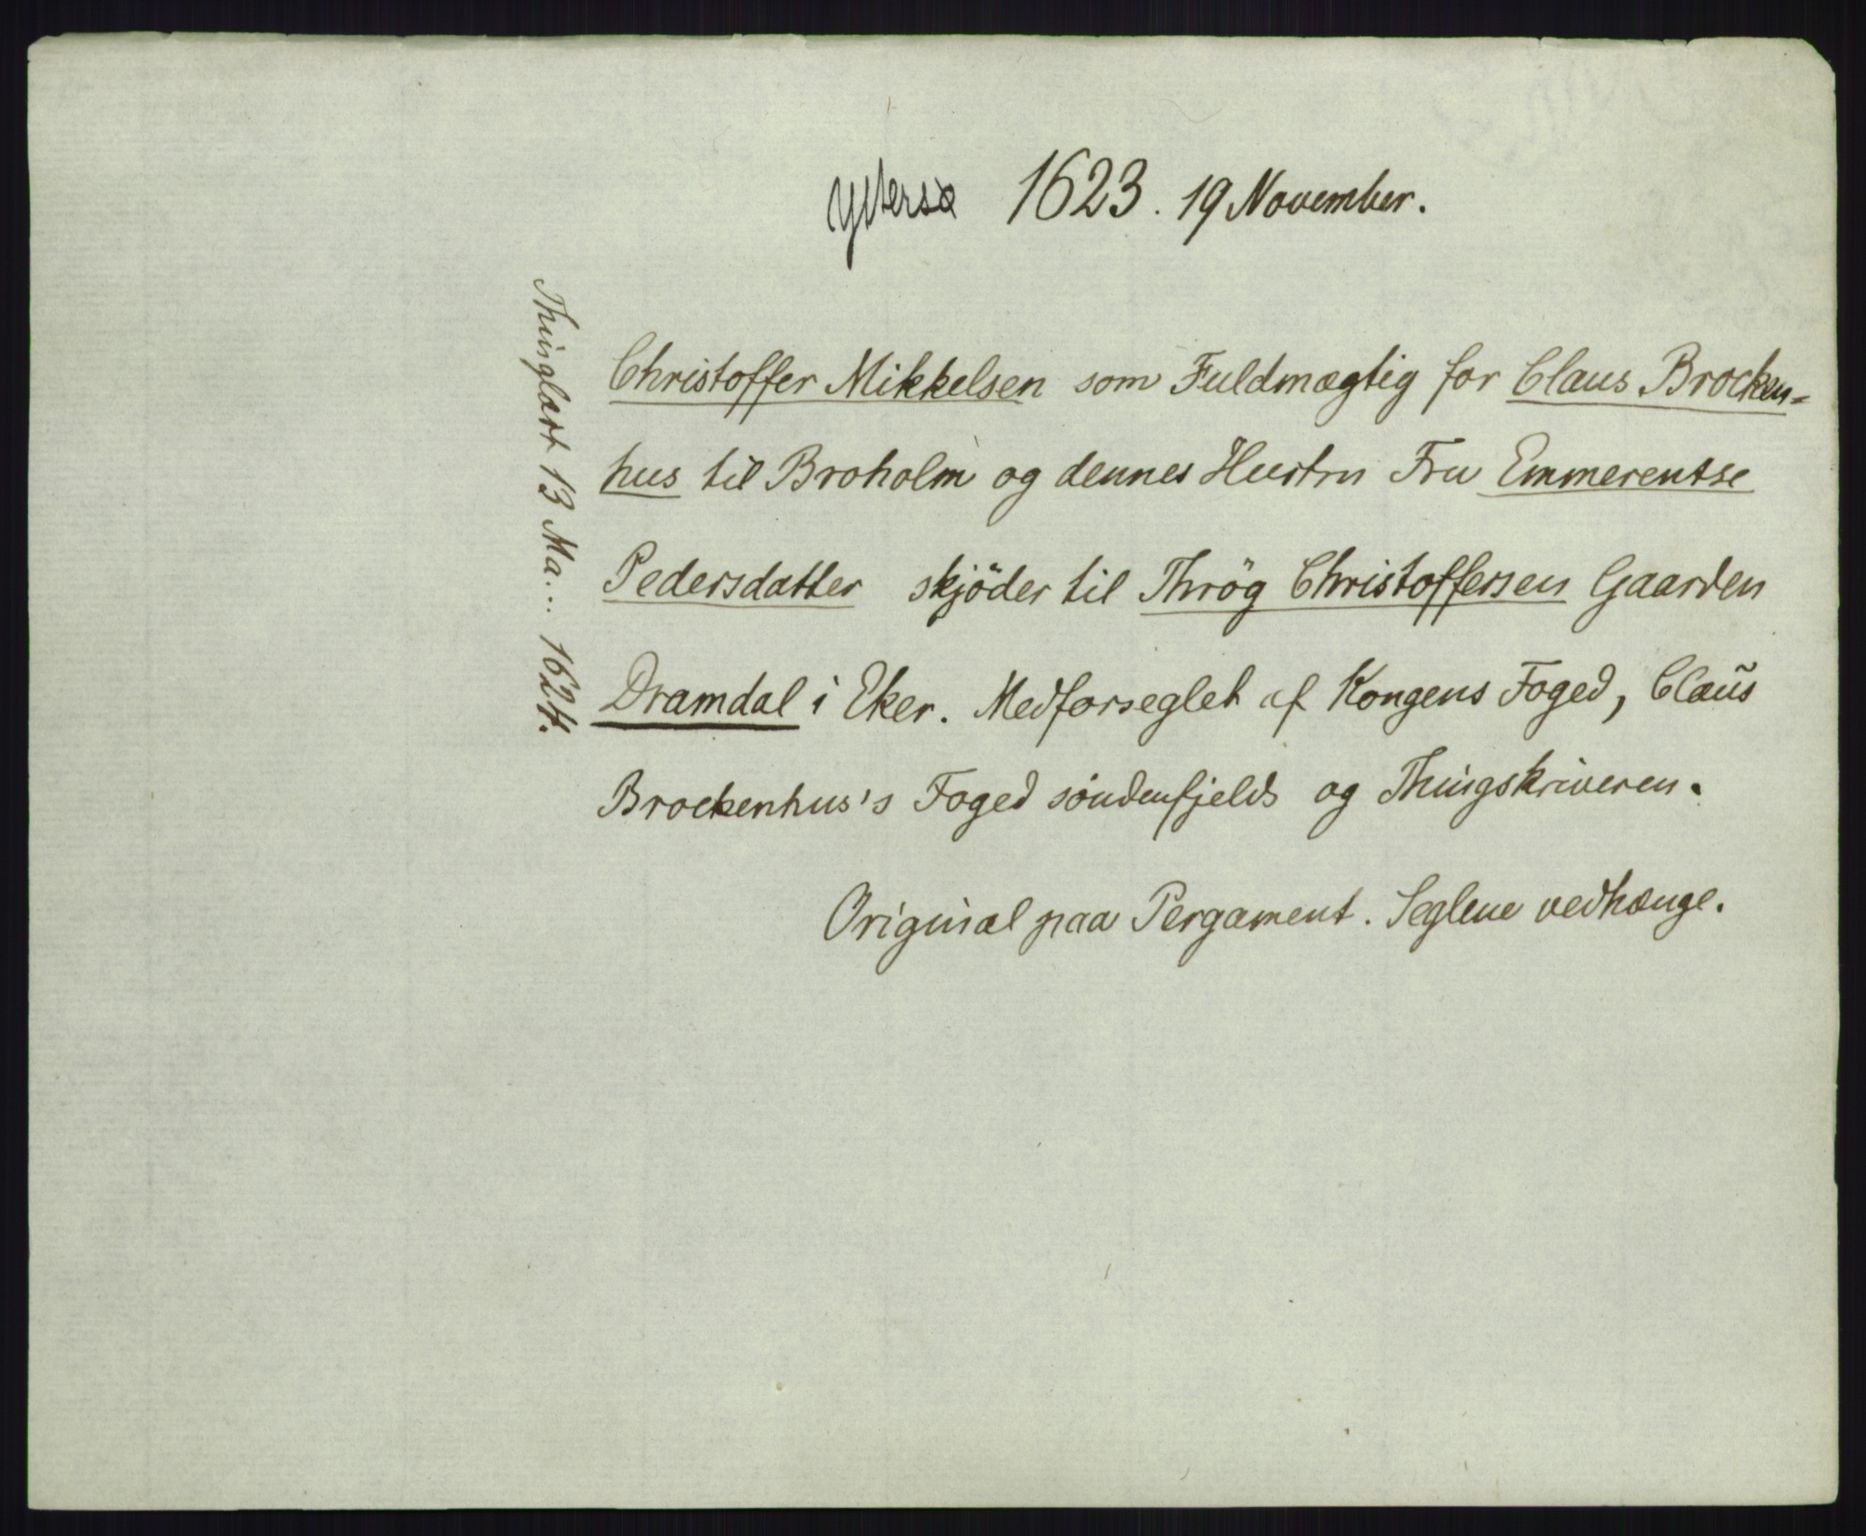 Yttersø 1623. 19 November.
Christoffer Mikkelsen som Fuldmægtig for Claus Brocken-
hus til Broholm og dennes Hustru Fru Emmerentse
Pedersdatter skjöder til Thrög Christoffersen Gaarden
Dramdal i Eker. Medforseglet af Kongens Foged, Claus
Brockenhus's Foged söndenfjelds og Thingskriveren.
Original paa Pergament. Seglene vedhænge.
Thinglæst 13 Ma... 1624.